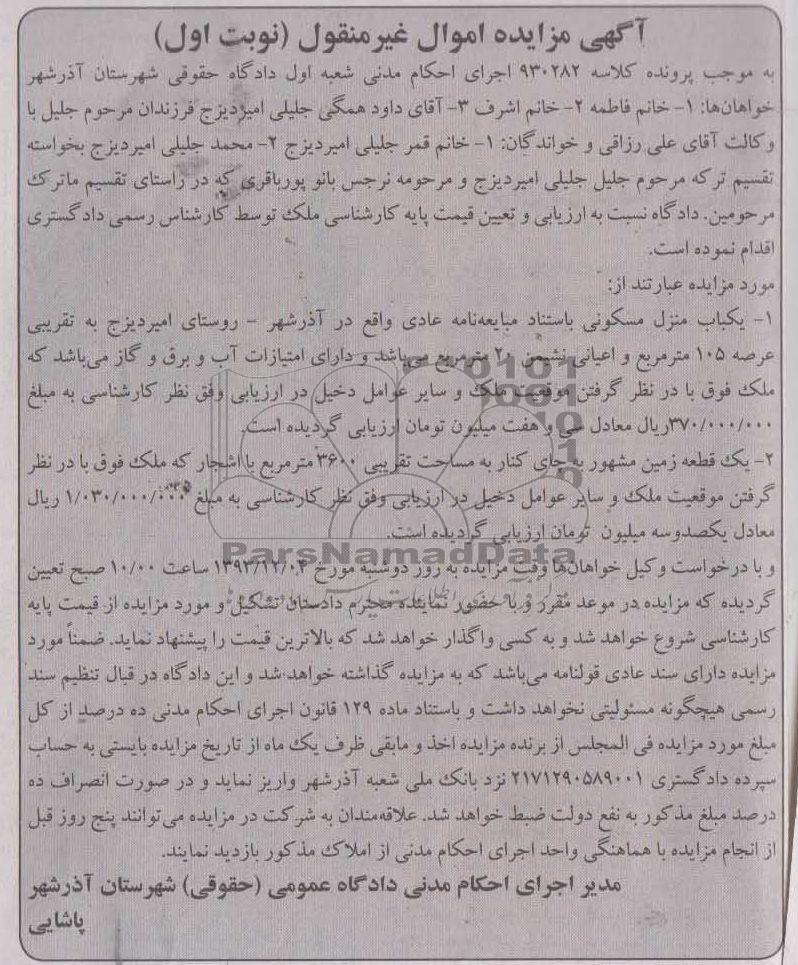 آگهی مزایده اموال غیرمنقول (نوبت اول)
به موجب پرونده کلاسه ۹۳۰۲۸۲ اجرای احکام مدنی شعبه اول دادگاه حقوقی شهرستان آذرشهر
خواهان‌ها: ۱- خانم فاطمه ۲- خانم اشرف ۳- آقای داود همگی جلیلی امیردیزج فرزندان مرحوم جلیل با
وکالت آقای علی رزاقی و خواندگان: ۱- خانم قمر جلیلی امیردیزج ۲- محمد جلیلی امیردیزج بخواسته
تقسیم ترکه مرحوم جلیل جلیلی امیردیزج و مرحومه نرجس بانو پورباقری که در راستای تقسیم ماترک
مرحومین. دادگاه نسبت به ارزیابی و تعیین قیمت پایه کارشناسی ملک توسط کارشناس رسمی دادگستری
اقدام نموده است.
مورد مزایده عبارتند از:
۱- یکباب منزل مسکونی باستناد مبایعه‌نامه عادی واقع در آذرشهر - روستای امیردیزج به تقریبی
عرصه ۱۰۵ مترمربع و اعیانی نشیمن ۲۰ مترمربع می‌باشد و دارای امتیازات آب و برق و گاز می‌باشد که
ملک فوق با در نظر گرفتن موقعیت ملک و سایر عوامل دخیل در ارزیابی وفق نظر کارشناسی به مبلغ
۳۷۰/۰۰۰/۰۰۰ریال معادل سی و هفت میلیون تومان ارزیابی گردیده است.
۲- یک قطعه زمین مشهور به چای کنار به مساحت تقریبی ۳۶۰۰ مترمربع با اشجار که ملک فوق با در نظر
گرفتن موقعیت ملک و سایر عوامل دخیل در ارزیابی وفق نظر کارشناسی به مبلغ ۱/۰۳۰/۰۰۰/۰۰۰ ریال
معادل یکصدوسه میلیون تومان ارزیابی گردیده است.
ParsNamadData
و با درخواست وکیل خواهان‌ها وقت مزایده به روز دوشنبه مورخ ۱۳۹۳/۱۲/۰۴ ساعت ۱۰/۰۰ صبح تعیین
گردیده که مزایده در موعد مقرر و با حضور نماینده محترم دادستان تشکیل و مورد مزایده از قیمت پایه
کارشناسی شروع خواهد شد و به کسی واگذار خواهد شد که بالاترین قیمت را پیشنهاد نماید. ضمناً مورد
مزایده دارای سند عادی قولنامه می‌باشد که به مزایده گذاشته خواهد شد و این دادگاه در قبال تنظیم سند
رسمی هیچگونه مسئولیتی نخواهد داشت و باستناد ماده ۱۲۹ قانون اجرای احکام مدنی ده درصد از کل
مبلغ مورد مزایده فی المجلس از برنده مزایده اخذ و مابقی ظرف یک ماه از تاریخ مزایده بایستی به حساب
سپرده دادگستری ۲۱۷۱۲۹۰۵۸۹۰۰۱ نزد بانک ملی شعبه آذرشهر واریز نماید و در صورت انصراف ده
درصد مبلغ مذکور به نفع دولت ضبط خواهد شد. علاقه‌مندان به شرکت در مزایده می‌توانند پنج روز قبل
از انجام مزایده با هماهنگی واحد اجرای احکام مدنی از املاک مذکور بازدید نمایند.
مدیر اجرای احکام مدنی دادگاه عمومی (حقوقی) شهرستان آذرشهر
پاشایی